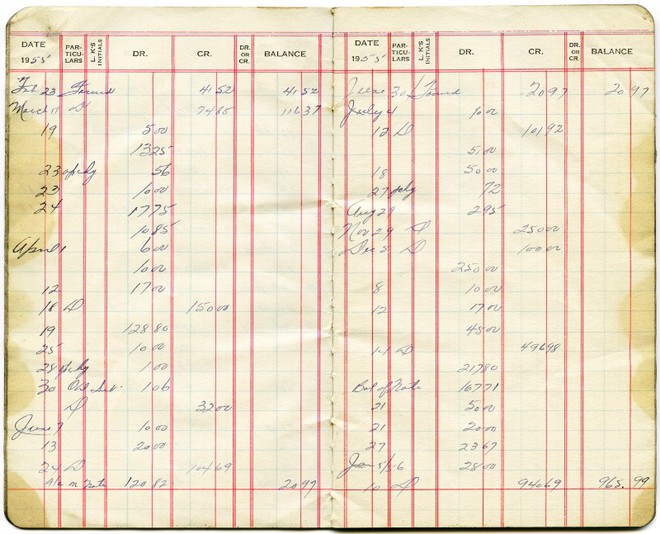 DATE 1955 PARTICULARS L. K'S INITIALS DR. CR. DR. OR CR. BALANCE
Feb 23 Forward 41 52 41 52
March 11 D 74 85 116 37
19 5 00
13 25
23 56
23 10 00
24 17 75
10 85
April 1 6 00
10 00
12 17 00
18 D 150 00
19 128 80
25 10 00
28 1 00
30 1 06
D 32 00
June 7 10 00
13 20 00
24 D 104 69
on Note 120 82 20 97
DATE 1955 PARTICULARS L. K'S INITIALS DR. CR. DR. OR CR. BALANCE
June 30 Forward 20 97 20 97
July 4 1 00
12 D 101 92
5 00
18 50 00
27 72
Aug 29 2 95
Nov 29 D 250 00
Dec 5 D 100 00
250 00
8 10 00
12 17 00
45 00
D 496 98
217 80
Bal of Note 167 71
21 50 00
21 20 00
27 23 67
Jan 5/56 28 00
10 D 946 69 965.99